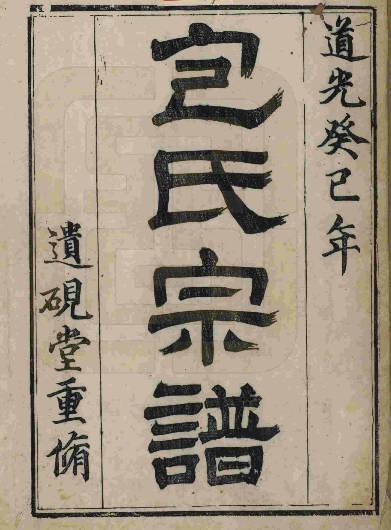 道光癸巳年
包氏宗譜
遺硯堂重脩